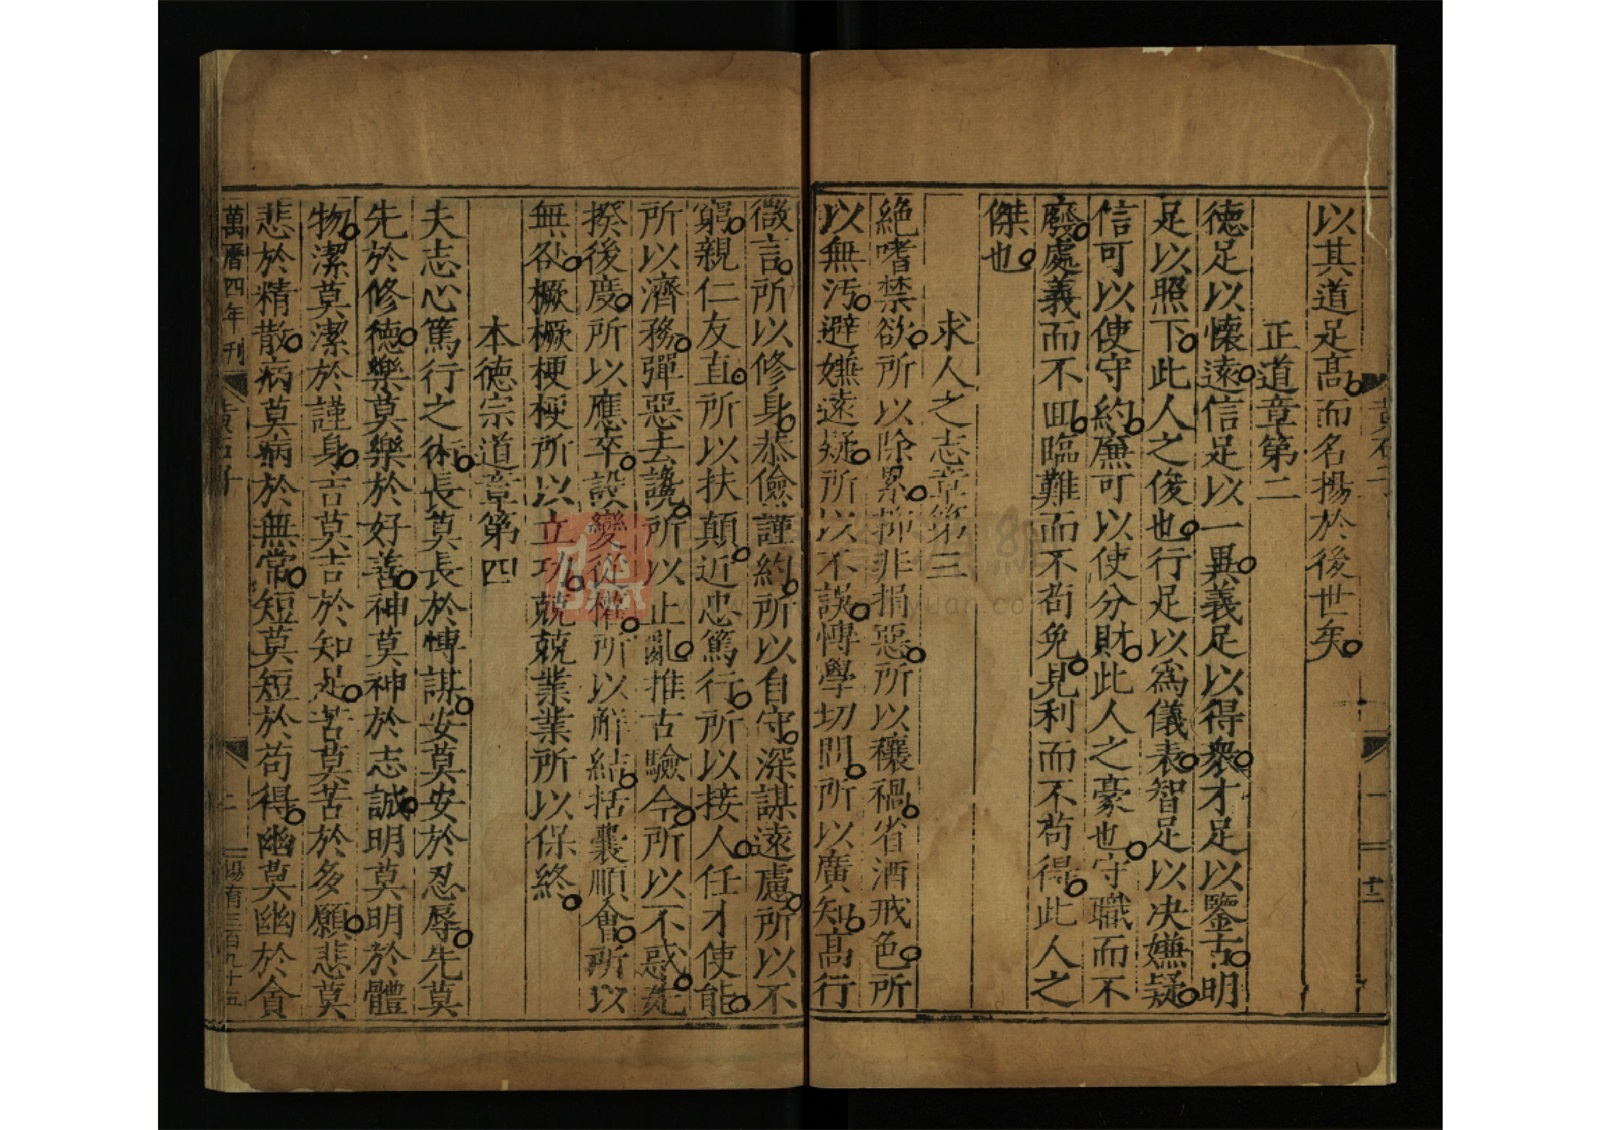 以其道足高而名揚於後世矣
正道章第二
德足以懷遠信足以一異義足以得衆才足以鑒古明
足以照下此人之俊也行足以爲儀表智足以决嫌疑
信可以使守約廉可以使分財此人之豪也守職而不
廢處義而不囬臨難而不苟免見利而不苟得此人之
傑也
求人之志章第三
絕嗜禁欲所以除累抑非損惡所以穰禍省酒戒色所
以無汚避嫌遠疑所以不誤愽學切問所以廣知高行
微言所以修身恭儉謹約所以自守深謀遠慮所以不
窮親仁友直所以扶顛近忠篤行所以接人任才使能
所以濟務彈惡去讒所以止亂推古驗今所以不惑先
揆後度所以應卒設變從權所以觧結括囊順會所以
無欲橛橛梗梗所以立功兢兢業業所以保終
本德宗道章第四
夫志心篤行之術長莫長於愽謀安莫安於忍辱先莫
先於修德樂莫樂於好善神莫神於志誠明莫明於體
物潔莫潔於謹身吉莫吉於知足苦莫苦於多願悲莫
悲於精散病莫病於無常短莫短於苟得幽莫幽於貪
萬曆四年刊 黃石子 上 楊育三百九十五